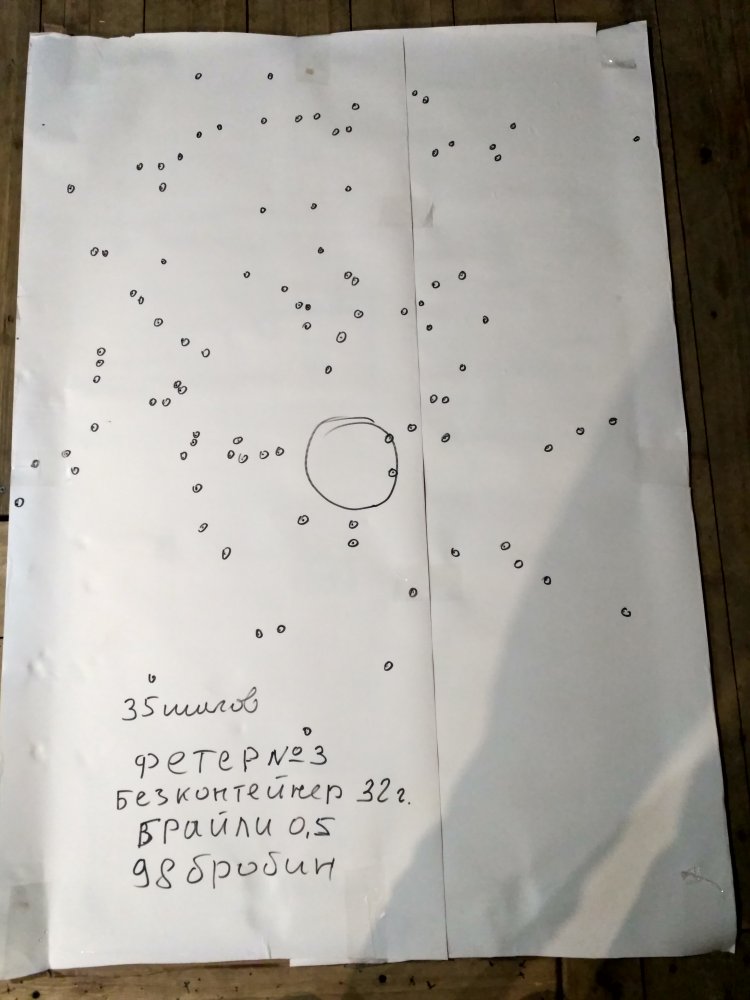 35 шагов
ФЕТЕР №3
Безконтейнер 32г.
Брайли 0,5
98 бробин